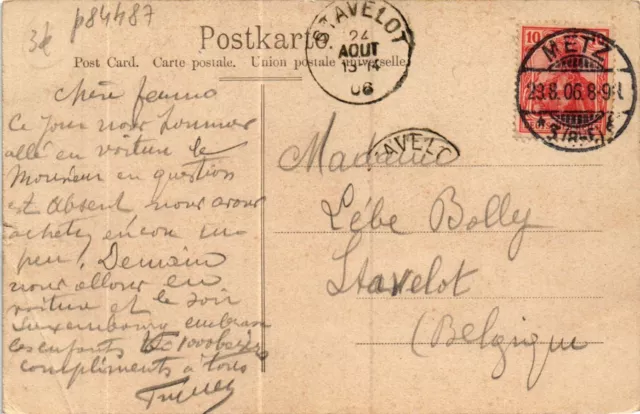 3k p84487
Postkarte.
Post Card. Carte postale. Union postale universelle.
STAVELOT
24
AOUT
13-14
06
10
METZ
23.8.06.8-9V.
STAVELOT
Chère femme
Ce jour nous sommes
allé en voiture le
Monsieur en question
est absent nous avons
acheté encore un
peu. Demain
nous allons en
voiture et le soir
Luxembourg embrasse
les enfants 1000 baisers
compliments à tous
Madame
Lébe Bolly
Stavelot
(Belgique)